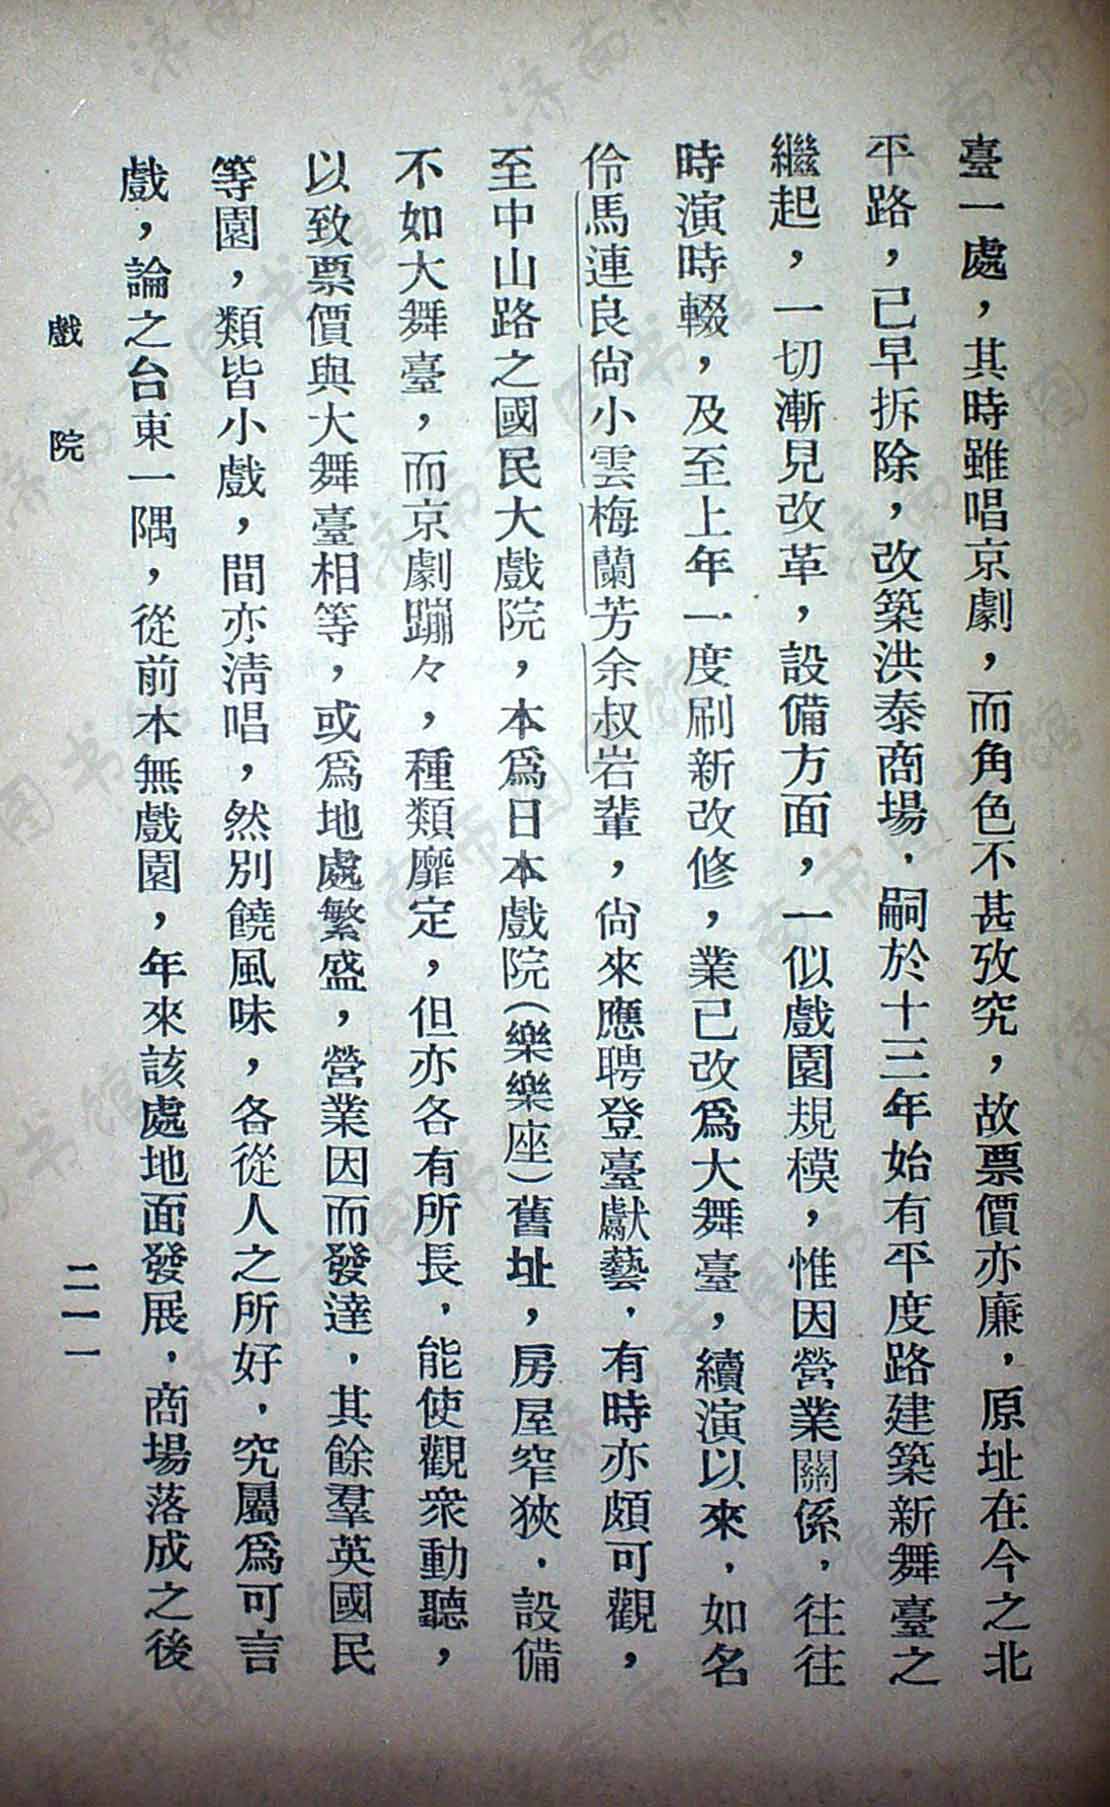 臺一處，其時雖唱京劇，而角色不甚攷究，故票價亦廉，原址在今之北
平路，已早拆除，改築洪泰商場，嗣於十三年始有平度路建築新舞臺之
繼起，一切漸見改革，設備方面，一似戲園規模，惟因營業關係，往往
時演時輟，及至上年一度刷新改修，業已改爲大舞臺，續演以來，如名
伶馬連良尙小雲梅蘭芳余叔岩輩，尙來應聘登臺獻藝，有時亦頗可觀，
至中山路之國民大戲院，本爲日本戲院（樂樂座）舊址，房屋窄狹，設備
不如大舞臺，而京劇蹦々，種類靡定，但亦各有所長，能使觀衆動聽，
以致票價與大舞臺相等，或爲地處繁盛，營業因而發達，其餘羣英國民
等園，類皆小戲，間亦淸唱，然別饒風味，各從人之所好，究屬爲可言
戲，論之台東一隅，從前本無戲園，年來該處地面發展，商場落成之後
戲院
二一一
济南市图书馆